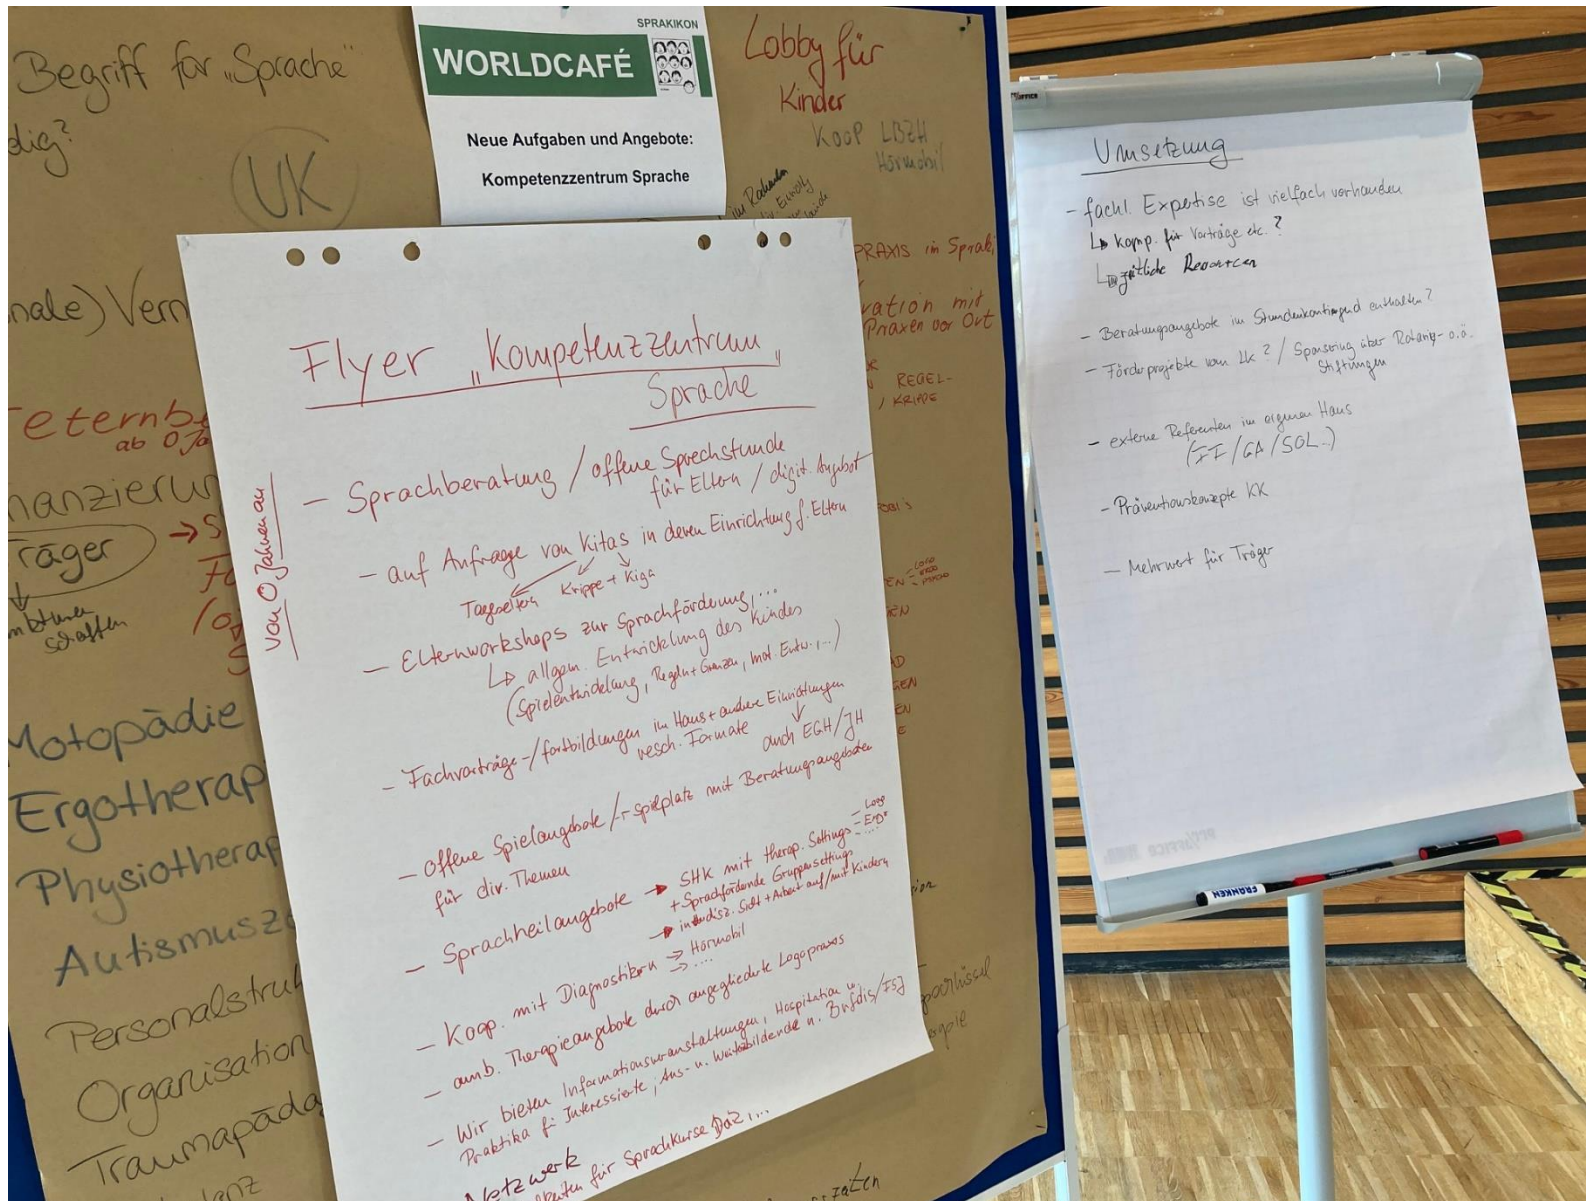 Begriff für „Sprache"
dig?
UK
nale) Vern
ab 0 Ja
nanzierun
Träger
schaffen
Motopädie
Ergotherap
Physiotherap
Autismusz
Personalstruk
Organisation
Traumapäda
SPRAKIKON
WORLDCAFÉ
Neue Aufgaben und Angebote:
Kompetenzzentrum Sprache
Lobby für
Kinder
KOOP LBZH
Hörmobil
PRAXIS in Spraki
ration mit
Praxen vor Ort
REGEL-
KRIPPE
Flyer „Kompetenzzentrum"
Sprache
von 0 Jahren an
- Sprachberatung / offene Sprechstunde
für Eltern / digit. Angebot
- auf Anfrage von Kitas in deren Einrichtung f. Eltern
Tageseltern Krippe + Kiga
- Elternworkshops zur Sprachförderung, ...
↳ allgem. Entwicklung des Kindes
(Spielentwicklung, Regeln + Grenzen, mot. Entw., ...)
- Fachvorträge-/fortbildungen im Haus + andere Einrichtungen
versch. Formate auch EGH/JH
- offene Spielangebote / - Spielplatz mit Beratungsangeboten
für div. Themen
- Sprachheilangebote → SHK mit therap. Settings = Logo
= Ergo
....
+ Sprachfördende Gruppensettings
→ interdisz. Sicht + Arbeit auf/mit Kindern
- Koop. mit Diagnostikern → Hörmobil
→ ....
- amb. Therapieangebote durch angegliederte Logopraxis
- Wir bieten Informationsveranstaltungen, Hospitation u.
Praktika für Interessierte, Aus- u. Weiterbildende u. Bufdis/FSJ
Netzwerk
für Sprachkurse, DaZ, ...
Umsetzung
- fachl. Expertise ist vielfach vorhanden
↳ Komp. für Vorträge etc.?
↳ zeitliche Ressourcen
- Beratungsangebote im Stundenkontingend enthalten?
- Förderprojekte vom LK? / Sponsoring über Rotary- o.ä.
Stiftungen
- externe Referenten im eigenen Haus
(FF/GA/SOL..)
- Präventionskonzepte KK
- Mehrwert für Träger
FRANKEN